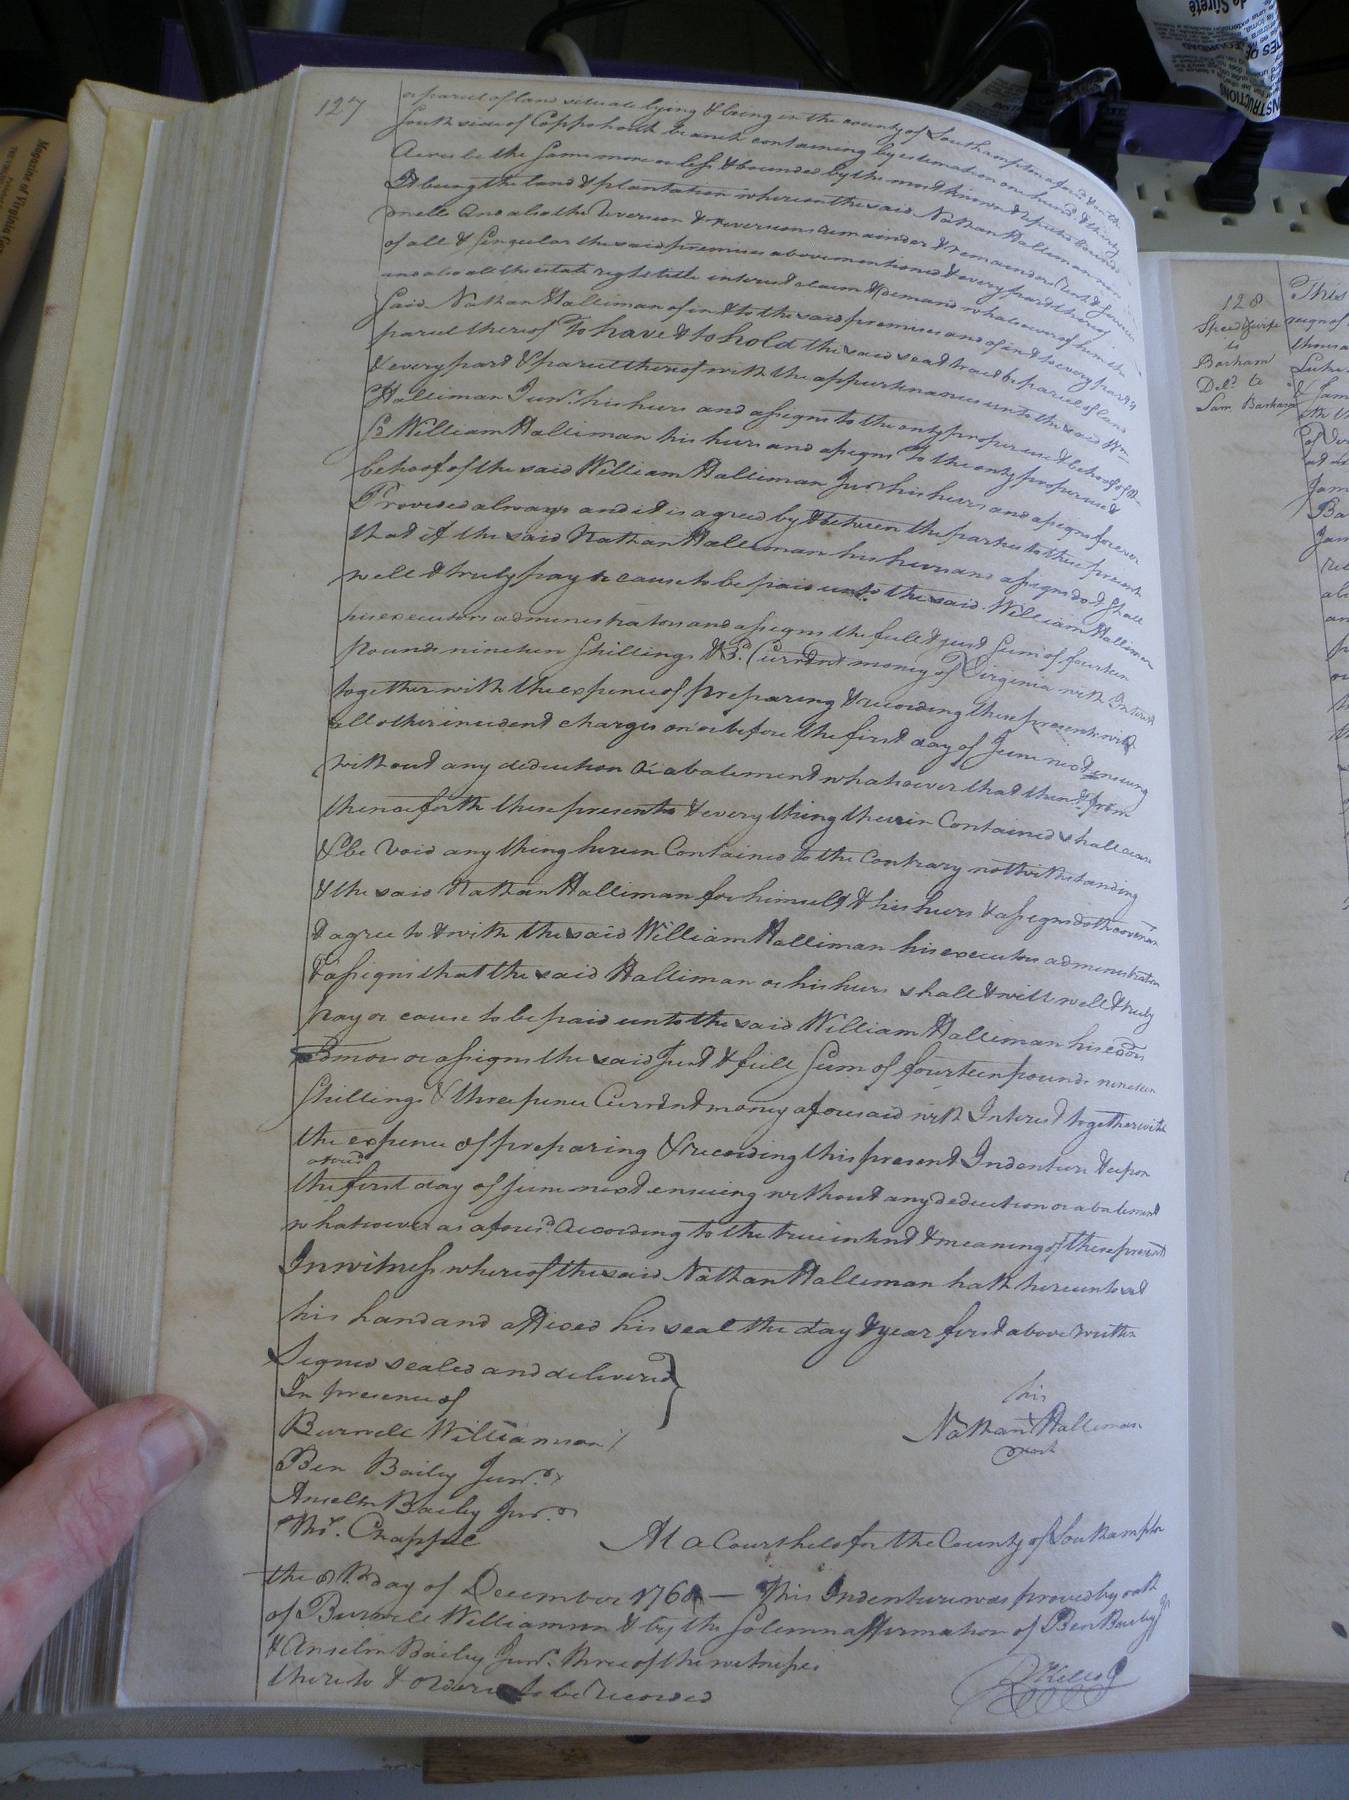 127
or parcel of land situate lying & being in the county of Southampton afores.d & on the
South side of Coppohonk branch containing by estimation one hund.d & thirty
Acres be the same more or less & bounded by the most known & reputed bounds
It being the land & plantation whereon the said Nathan Halliman now
dwells And also the reversion & reversions remainder & remainders rents & services
of all & singular the said premises abovementioned & every part thereof
and also all the estate right title interest claim & demand whatsoever of him the
said Nathan Halliman of in & to the said premises and of in & to every part &
parcel thereof To have & to hold the said seat tract & parcel of land
& every part & parcel thereof with the appurtenances unto the said Wm
Halliman Jun.r his heirs and assigns to the only proper use & behoof of the
sd William Halliman his heirs and assigns to the only proper use &
behoof of the said William Halliman Jur his heirs and assigns forever
Provided always and it is agreed by & between the parties to these presents
that if the said Nathan Halliman his heirs and assigns do & shall
well & truly pay or cause to be paid unto the said William Halliman
his executors administrators and assigns the full & just Sum of fourteen
Pounds nineteen Shillings & 3.d Current money of Virginia with Interest
together with the expence of preparing & recording these presents with
all other incident charges on or before the first day of June next ensuing
without any deduction or abatement whatsoever that then & from
thenceforth these presents & every thing therein Contained shall cease
& be void any thing herein Contained to the Contrary notwithstanding
& the said Nathan Halliman for himself & his heirs & assigns doth covenant
& agree to & with the said William Halliman his executors administrators
& assigns that the said Halliman or his heirs shall & will well & truly
pay or cause to be paid unto the said William Halliman his exors
admors or assigns the said Just & full Sum of fourteen pounds nineteen
Shillings & three pence Current money aforesaid with Interest together with
the expence of preparing & recording this present Indenture & upon
afores.d
the first day of June next ensuing without any deduction or abatement
whatsoever as afores.d According to the true intent & meaning of these presents
In witness whereof the said Nathan Halliman hath hereunto set
his hand and affixed his seal the day & year first above written
Signed sealed and delivered
In presence of
his
Burwell Williamson
Nathan X Halliman
mark
Ben Bailey Jun.r
Anselm Bailey Jur.
Tho.s Chappel
At a Court held for the County of Southampton
the 8th day of December 176 — This Indenture was proved by oath
of Burwell Williamson & by the solemn affirmation of Ben Bailey Jr
& Anselm Bailey Jun.r three of the witnesses
thereto & ordered to be recorded
RKello
128
Speed & wife
to
Barham
Del.d to
Sam. Barham
This
reign of
thousa
Luke
Jam
Ba
Magazine of Virginia Gen
INSTRUCTIONS
de Sûreté